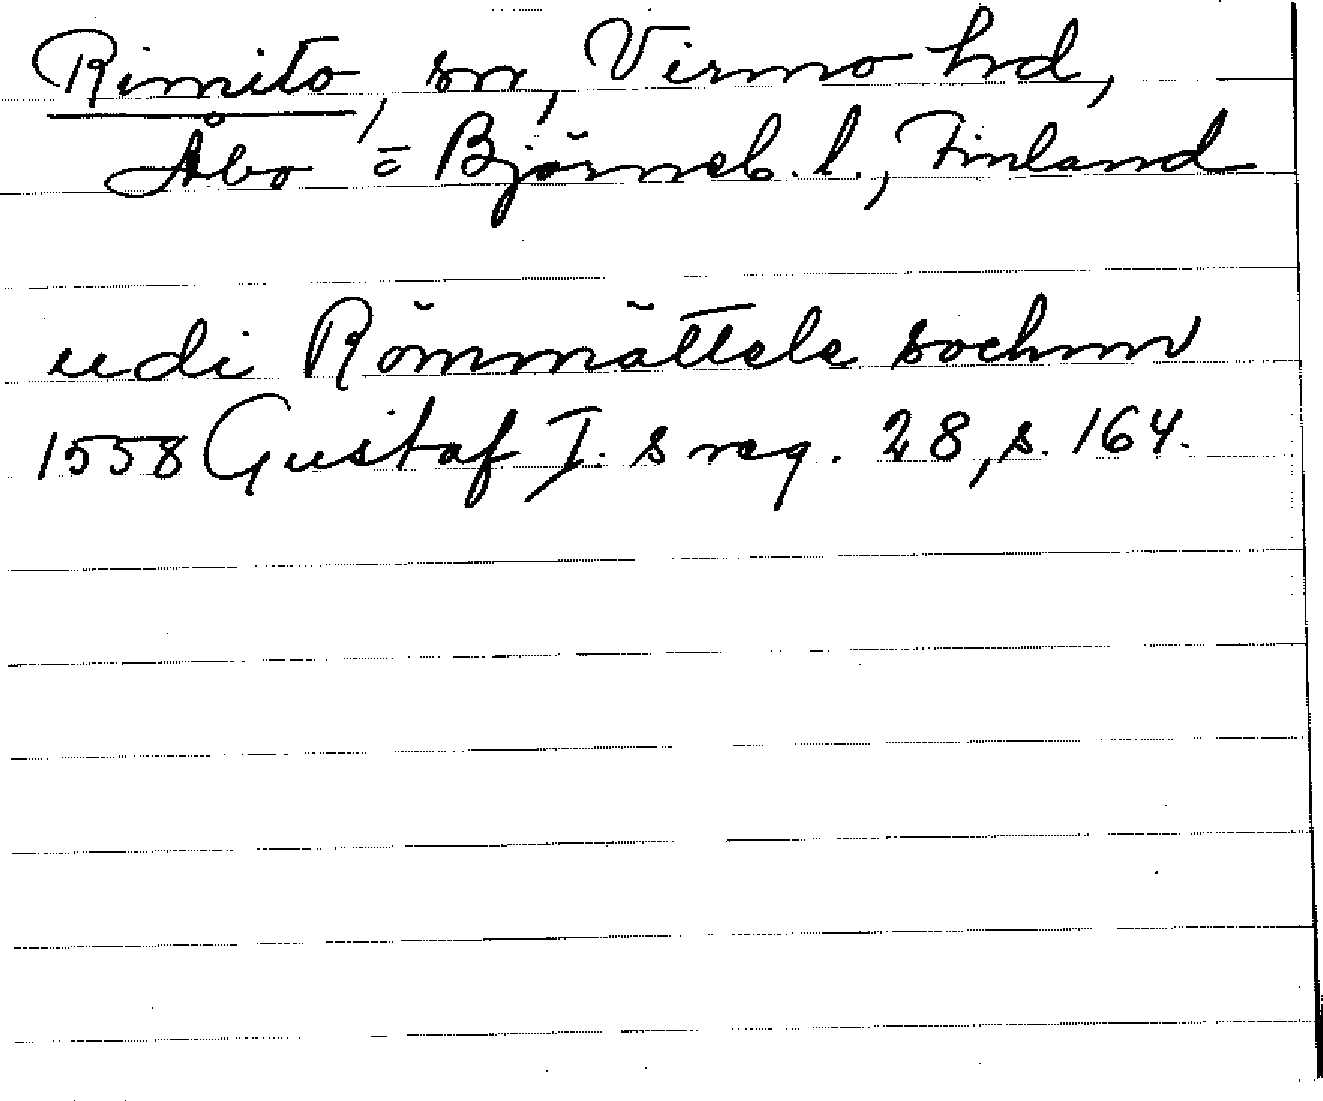 Rimito, sn, Virmo hrd,
Åbo o Björneb. l., Finland
udi Römmättele sochnn
1558 Gustaf I. s reg. 28, s. 164.